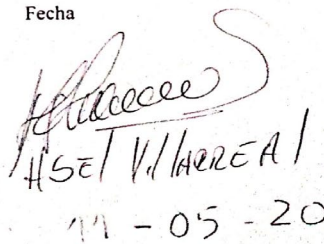 Fecha
HSEI VillARREAl
11 - 05 - 20